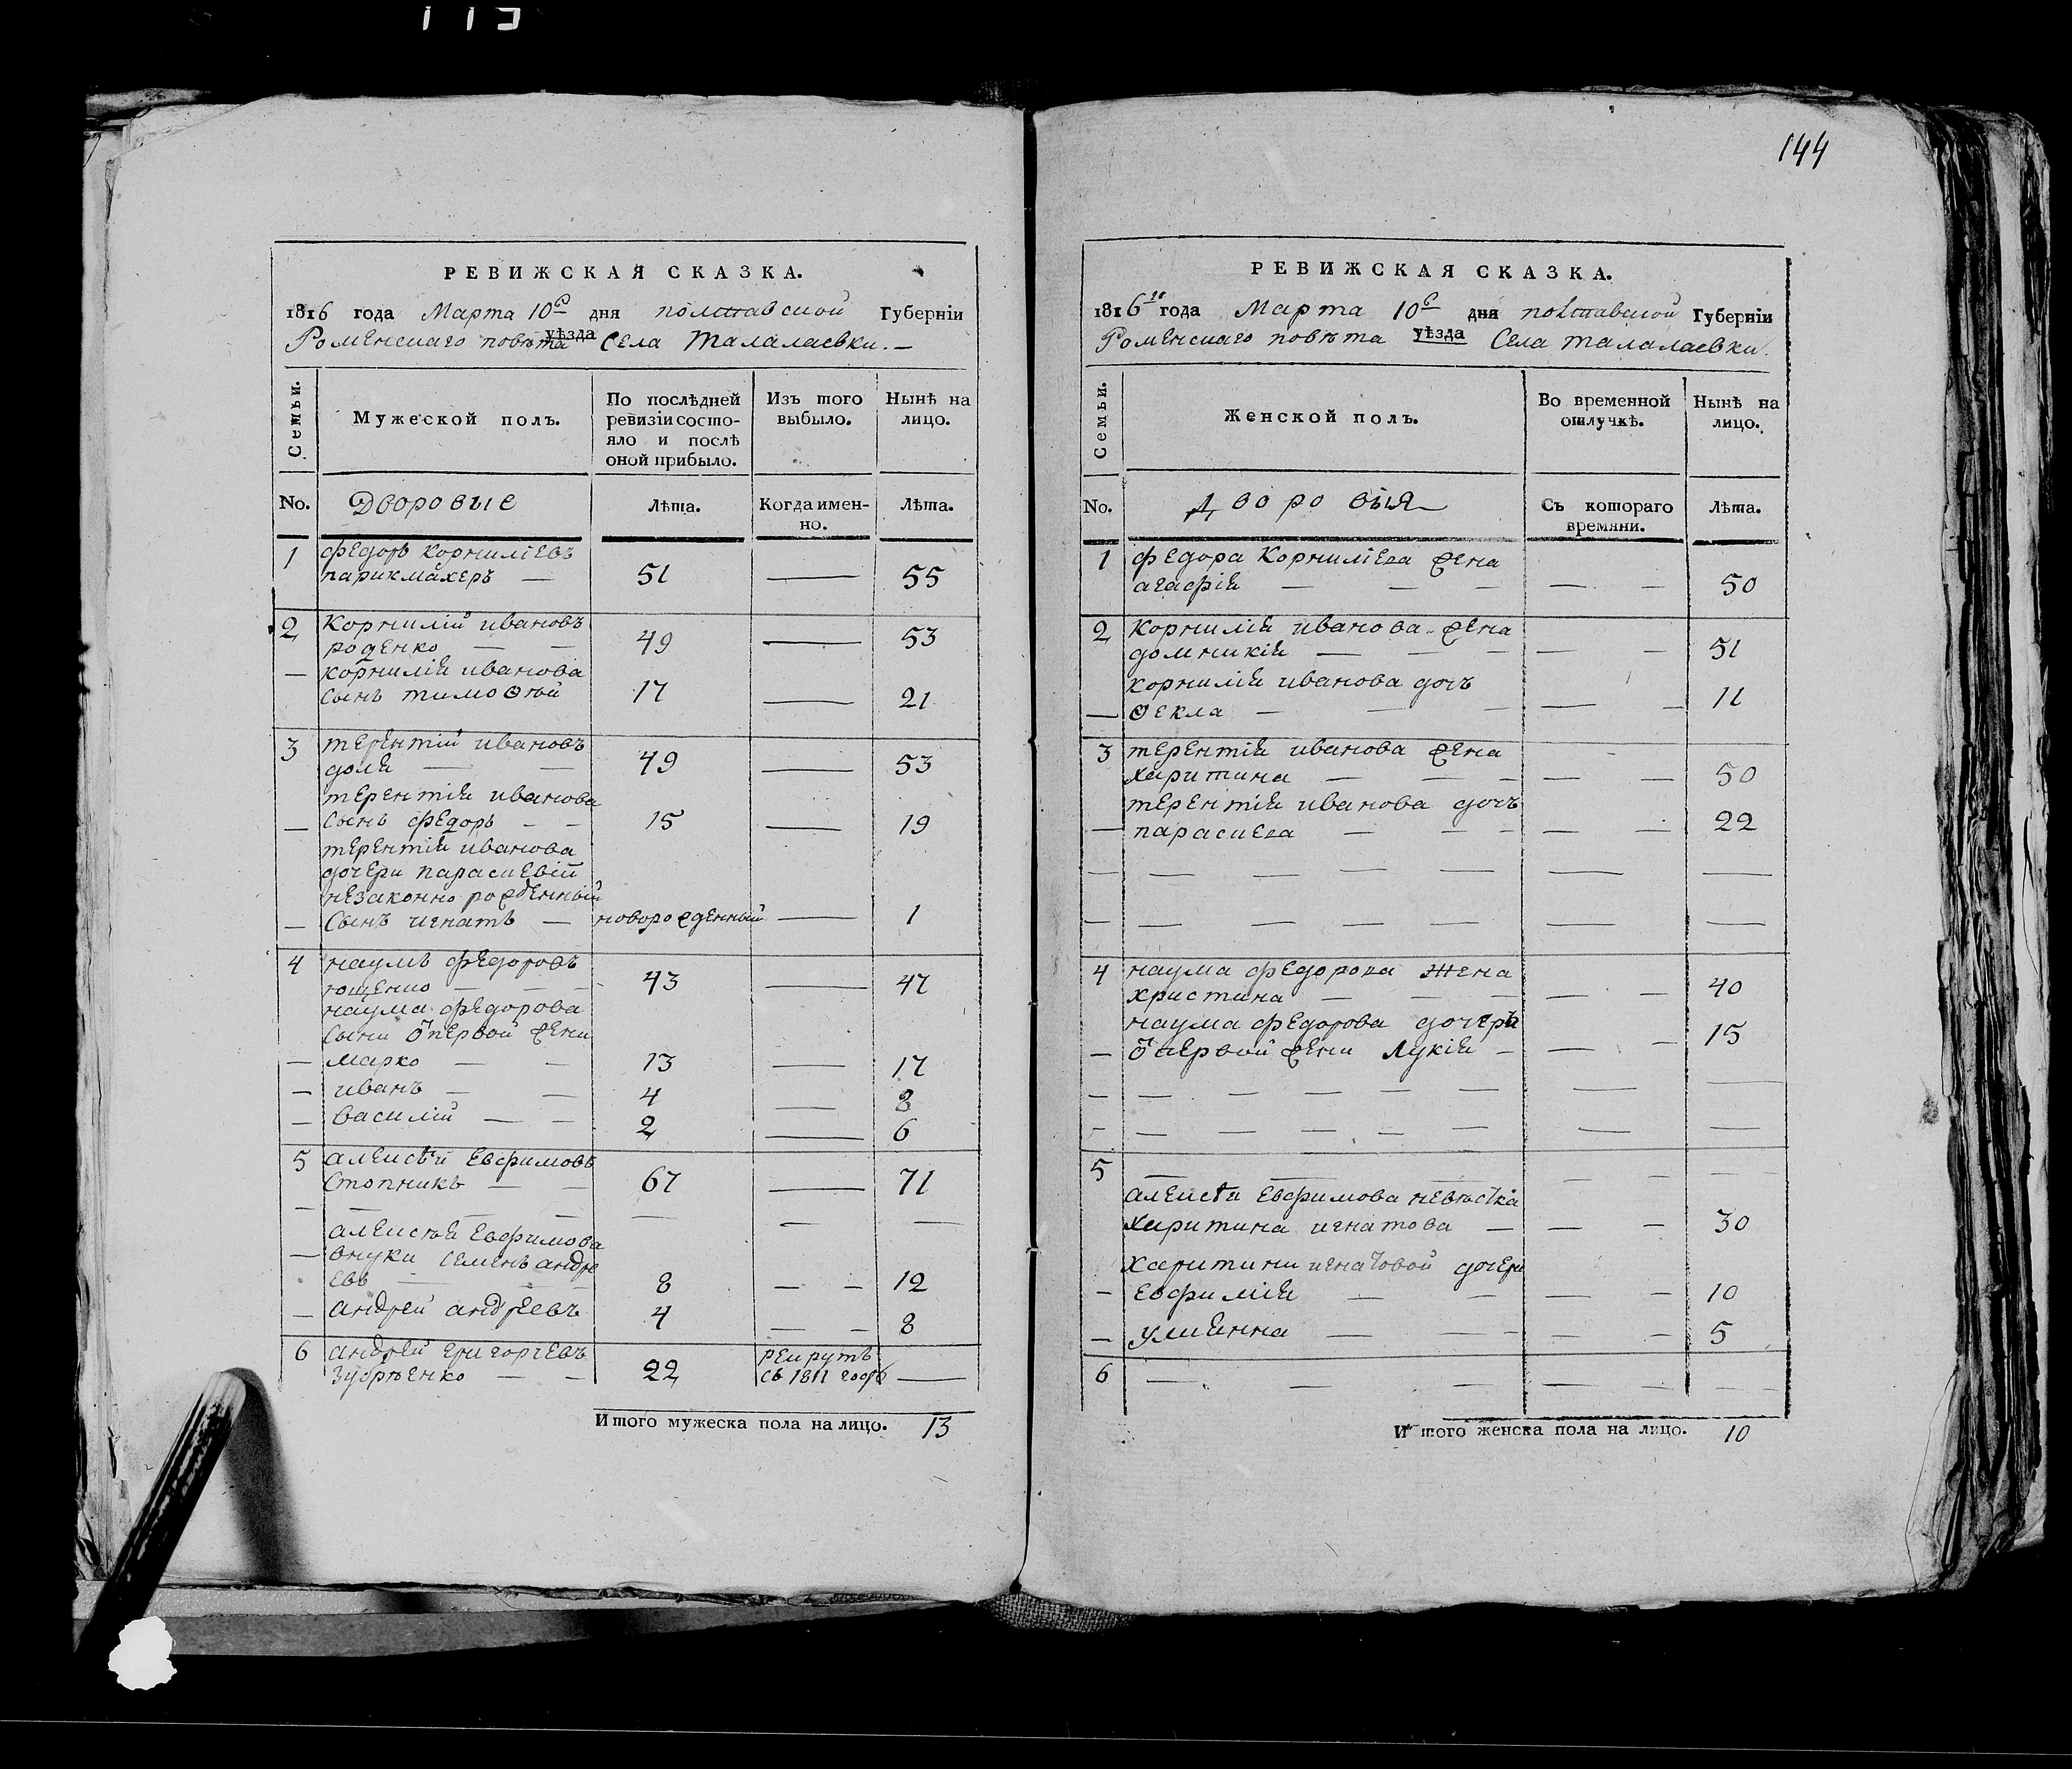 144
РЕВИЖСКАЯ СКАЗКА.
1816 года Марта 10го дня полтавской Губерніи
Роменскаго повѣта уѣзда Села Талалаевки.—
Семьи.
Мужеской полъ.
По послѣдней ревизіи состояло и послѣ оной прибыло.
Изъ того выбыло.
Нынѣ на лицо.
No. Дворовые Лѣта. Когда именно. Лѣта.
1 федоръ корниліевъ
парикмахеръ — 51 — 55
2 Корнилій ивановъ
роденко — 49 — 53
— корнилія иванова
Сынъ тимоѳей 17 — 21
3 терентій ивановъ
доля — 49 — 53
терентія иванова
— Сынъ федоръ — 15 — 19
терентія иванова
дочери параскевіи
незаконно рожденный
— Сынъ игнатъ — новорожденный — 1
4 наумъ федоровъ
ющенко — 43 — 47
наума федорова
Сыни ѿ первой жени
— марко — 13 — 17
— иванъ — 4 — 8
— василій — 2 — 6
5 алексѣй евфимовъ
Стопникъ — 67 — 71
— — — — —
алексѣя евфимова
— внуки семенъ андре
евъ — 8 — 12
— андрей андреевъ 4 — 8
6 андрей григорьевъ рекрутъ
Зубрѣенко — 22 съ 1811 года —
Итого мужеска пола на лицо. 13
РЕВИЖСКАЯ СКАЗКА.
1816го года Марта 10го дня полтавской Губерніи
Роменскаго повѣта уѣзда Села талалаевки.
Семьи.
Женской полъ.
Во временной отлучкѣ.
Нынѣ на лицо.
No. Дворовыя Съ котораго времяни. Лѣта.
1 федора Корниліева жена
агафія — — 50
2 корнилія иванова жена
домникія — — 51
корнилія иванова дочъ
— Ѳекла — — 11
3 терентія иванова жена
харитина — — 50
терентія иванова дочъ
— параскева — — 22
— — — —
— — — —
4 наума федорова жена
христина — — 40
наума федорова дочеръ
— ѿ первой жени лукія — — 15
— — — —
— — — —
5 — — —
алексѣя евфимова невѣстка
харитина игнатова — — 30
харитини игнатовой дочери
— евфимія — — 10
— улиянна — — 5
6 — — —
Итого женска пола на лицо. 10